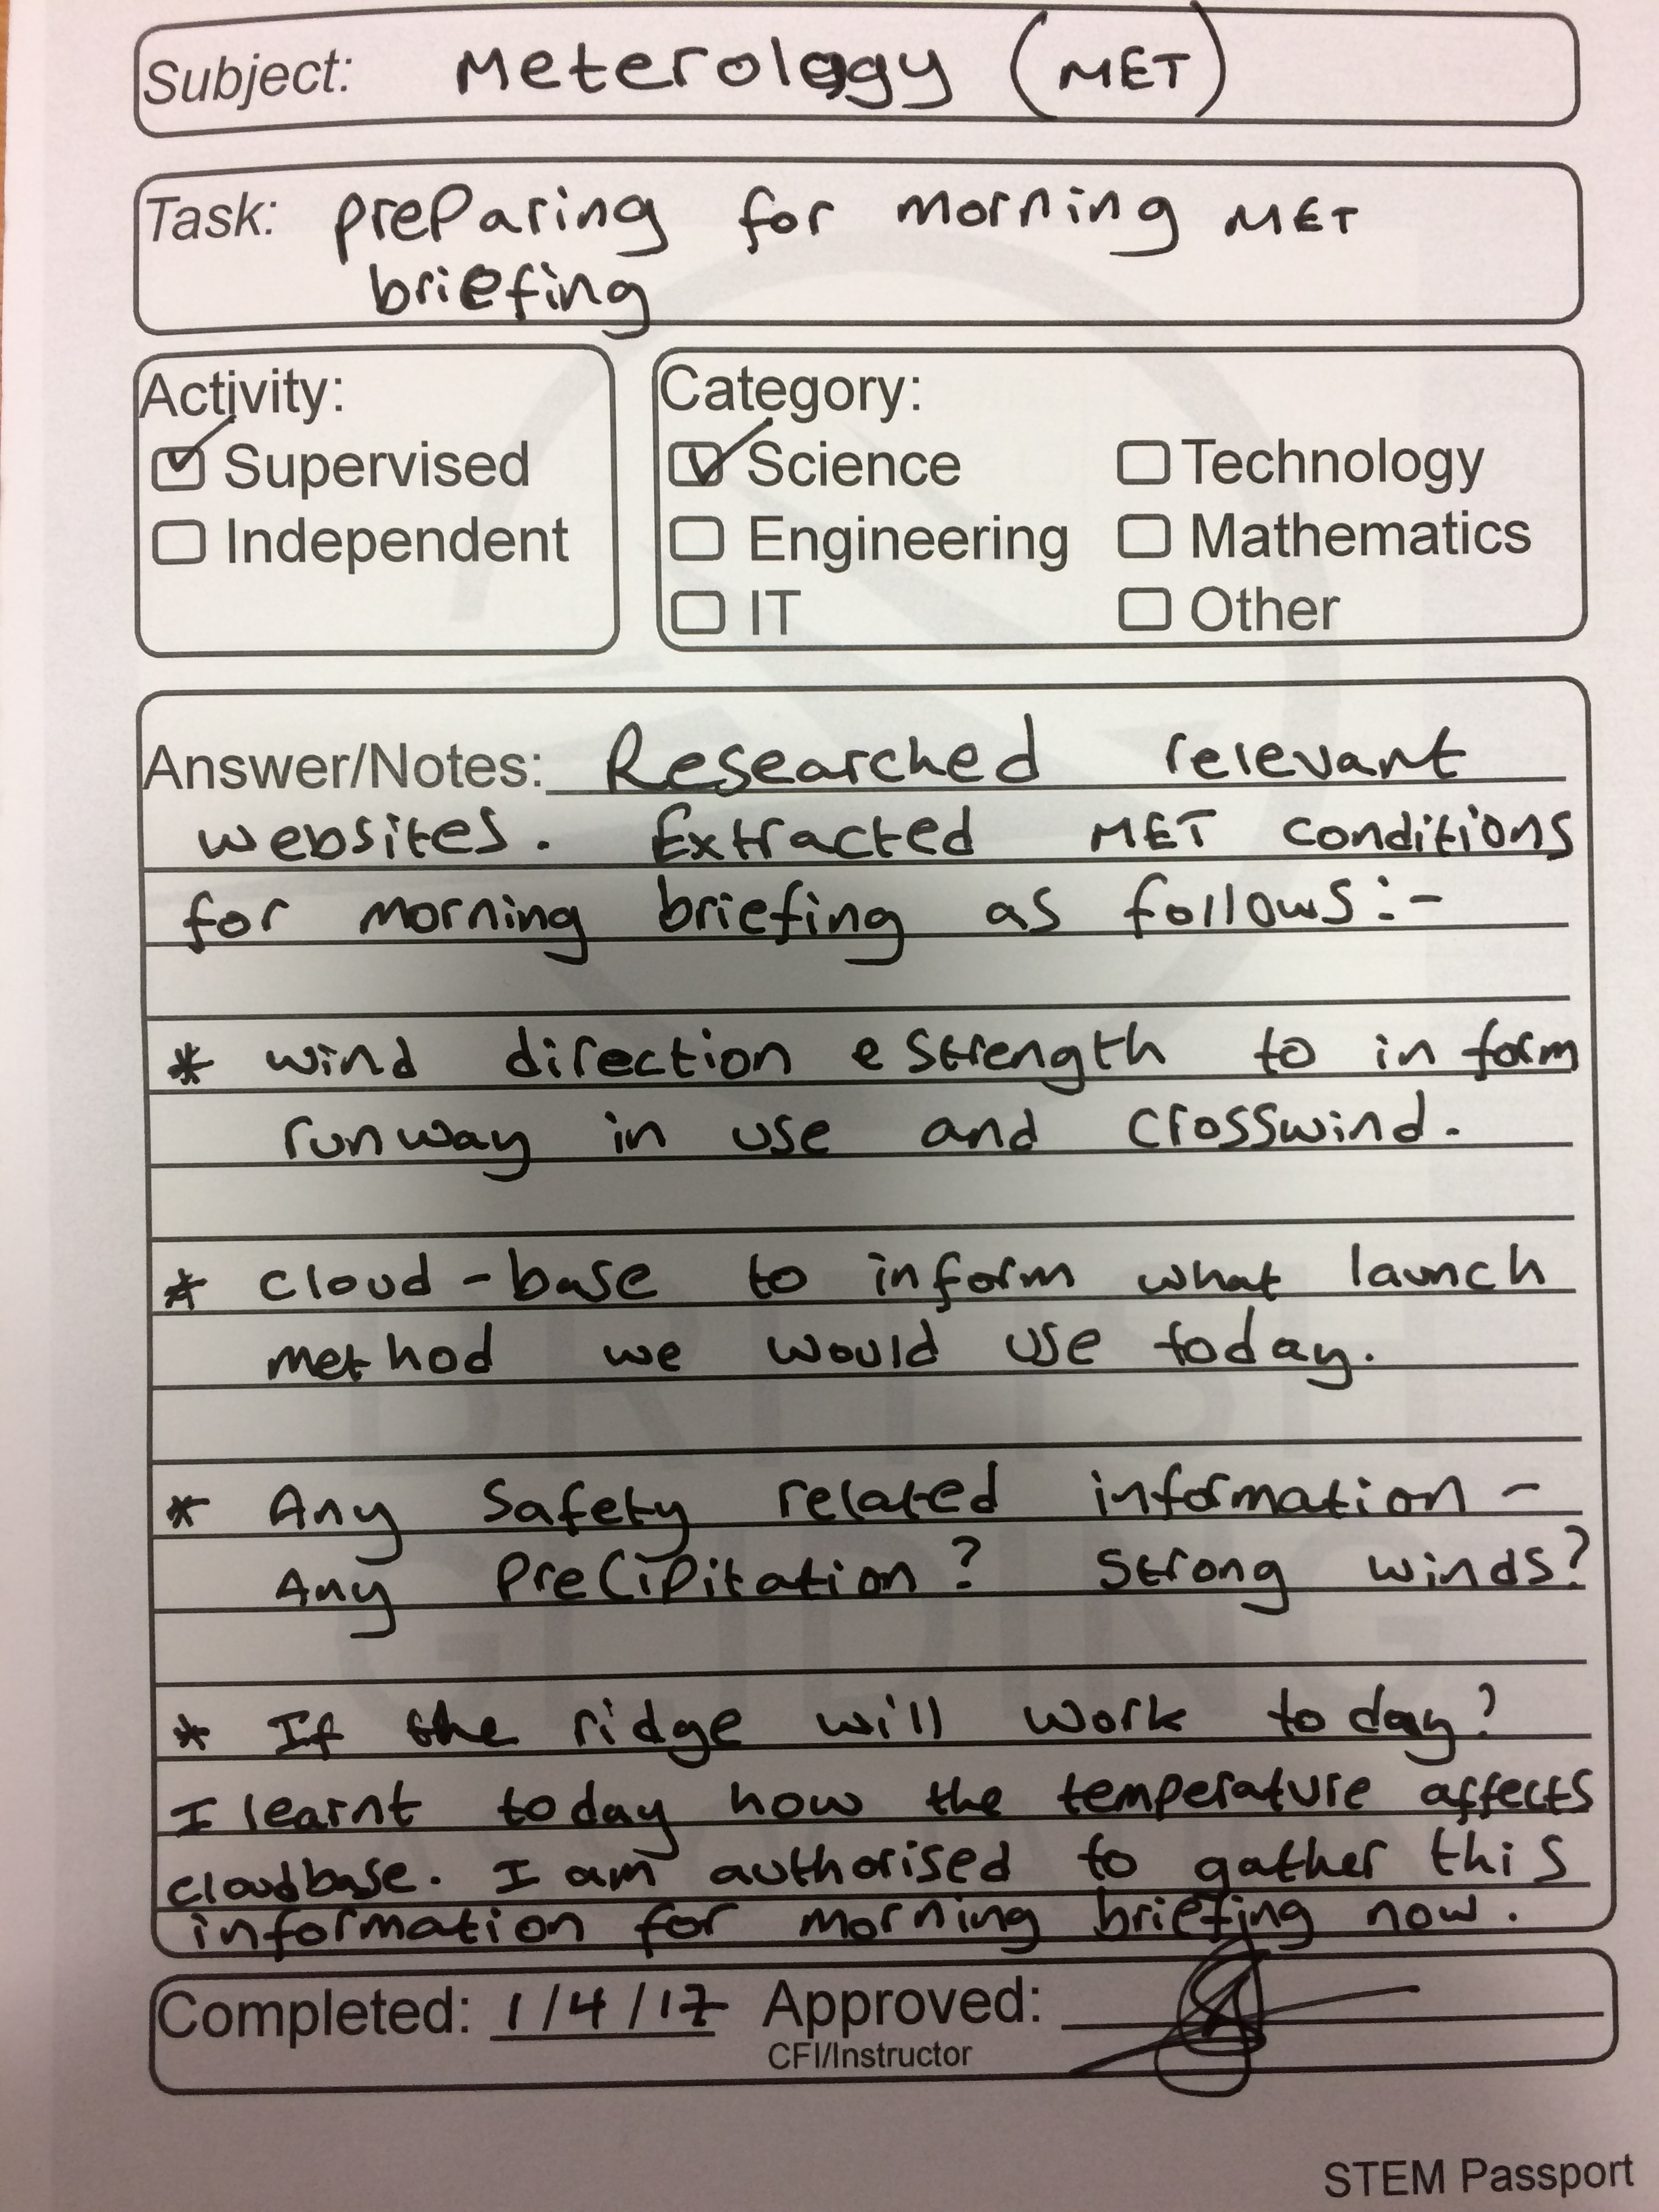 Subject: Meterology (MET)
Task: preparing for morning MET
briefing
Activity:
Supervised
Independent
Category:
Science
Technology
Engineering
Mathematics
IT
Other
Answer/Notes: Researched relevant
websites. Extracted MET conditions
for morning briefing as follows:-
* wind direction e strength to inform
runway in use and crosswind.
* cloud-base to inform what launch
method we would use today.
* Any Safety related information -
Any Precipitation? Strong winds?
* If the ridge will work today?
I learnt today how the temperature affects
cloudbase. I am authorised to gather this
information for morning briefing now.
Completed: 1/4/17 Approved:
CFI/Instructor
BRITISH
GLIDING
STEM Passport